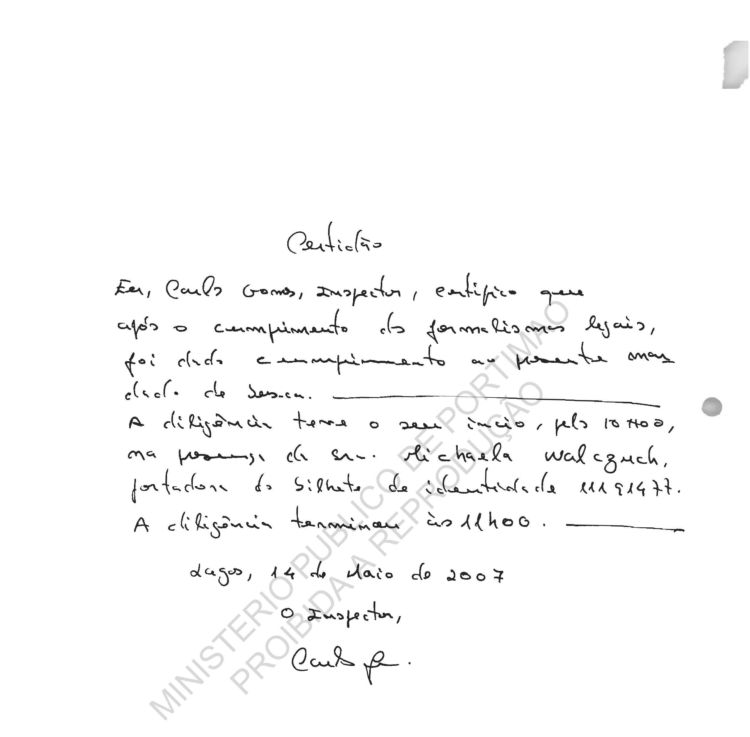 Certidão
Eu, Carlos Gomes, Inspector, certifico que
após o cumprimento dos formalismos legais,
foi dado cumprimento ao presente man
dado de busca.
A diligência teve o seu início, pelas 10H00,
na presença da Sra. Michaela Walczuch,
portadora do bilhete de identidade 11191477.
A diligência terminou às 11h00.
Lagos, 14 de Maio de 2007
O Inspector,
MINISTERIO PUBLICO DE PORTIMAO
PROIBIDA A REPRODUÇÃO